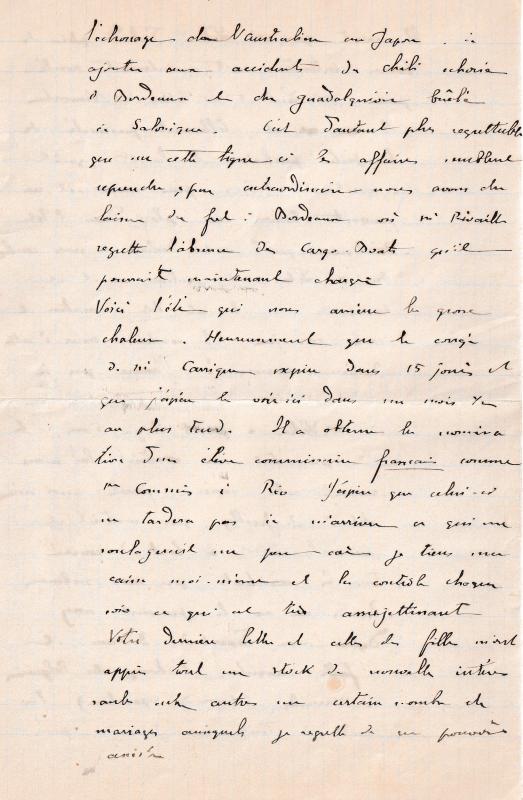 l'échouage de l'Australien au Japon. à
ajouter aux accidents du Chili échoué
à Bordeaux et du Guadalquivir brûlé
à Salonique. C'est d'autant plus regrettable
que sur cette ligne ci les affaires semblent
reprendre; par extraordinaire nous avons du
laisser du fret à Bordeaux où Mr Rivaill
regrette l'absence des Cargo-Boats qu'il
pourrait maintenant charger
Voici l'été qui nous amène les grosses
chaleurs. Heureusement que le congé
de Mr Carrique expire dans 15 jours et
que j'espère le voir ici dans un mois ½
au plus tard. Il a obtenu la nomina
tion d'un élève commissaire français comme
1er Commis à Rio J'espère que celui-ci
ne tardera pas à m'arriver ce qui me
soulagerait un peu car je tiens ma
caisse moi-même et la contrôle chaque
soir ce qui est très assujettissant
Votre dernière lettre et celles des filles m'ont
appris tout un stock de nouvelles intéres
santes entre autres un certain nombre de
mariages auxquels je regrette de ne pouvoir
assister